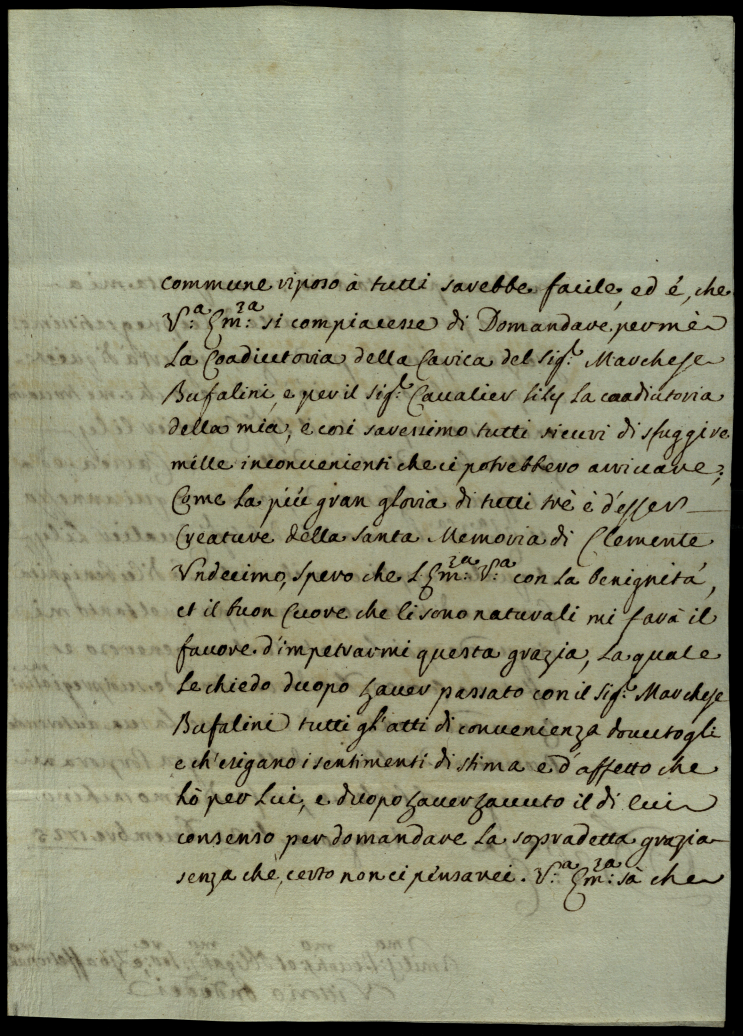 commune riposo à tutti sarebbe facile, ed é, che
V.ᵃ Em.ᶻᵃ si compiacesse di Domandare per mè
La Coadiutoria della Carica del Sig.ʳ Marchese
Bufalini, e per il sig.ʳ Caualier Lily La coadiutoria
della mia, e cosi saressimo tutti sicuri di sfuggire
mille inconuenienti che ci potrebbero arriuare;
Come La più gran gloria di tutti trè è d'esser
Creature della santa Memoria di Clemente
Vndecimo, spero che L'Em.ᶻᵃ V.ᵃ con La benignità,
et il buon Cuore che li sono naturali mi farà il
fauore d'impetrarmi questa grazia, La quale
Le chiedo duopo hauer passato con il Sig.ʳ Marchese
Bufalini tutti gl'atti di conuenienza douutogli
e ch'esigano i sentimenti di stima e d'affetto che
hò per Lui, e duopo hauer hauuto il di lui
consenso per domandare La sopradetta grazia
senza che, certo non ci pensarei. V.ᵃ Em.ᶻᵃ sà che